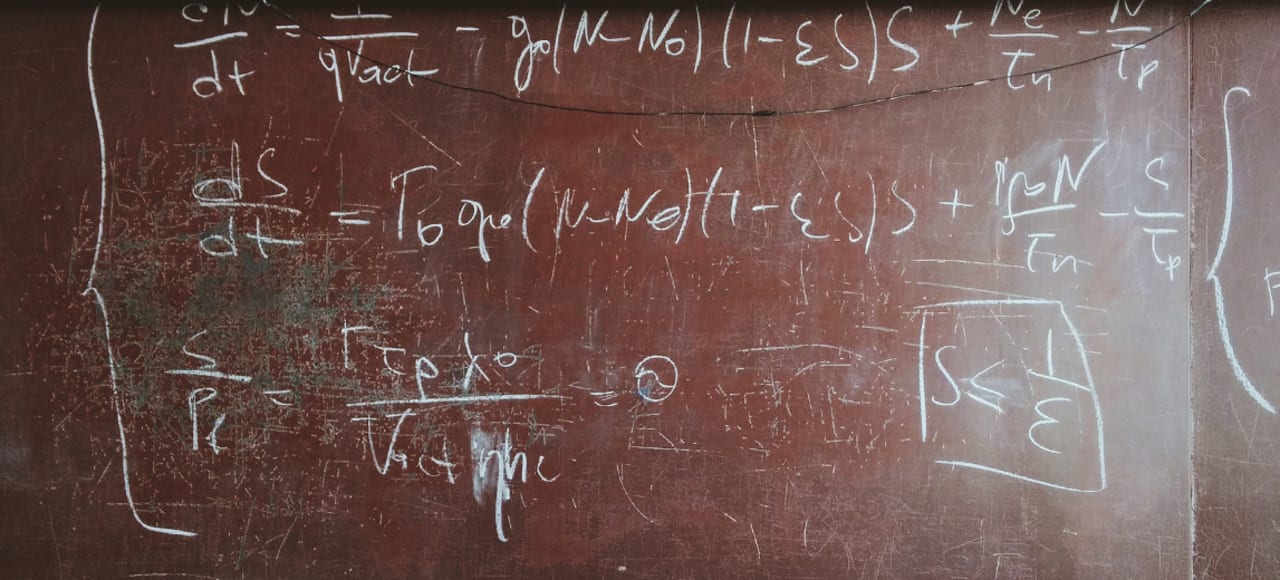 dN/dt = I/qVact - g₀(N-N₀)(1-εS)S + Ne/τn - N/τp
dS/dt = Γ₀g₀(N-N₀)(1-εS)S + ΓβN/τn - S/τp
S/Pf = Γτpλ₀/Vactηhc = ∼
S ≤ 1/ε